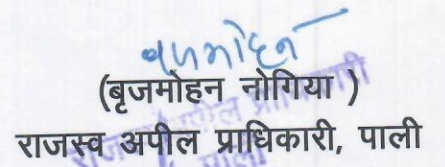 बृजमोहन
(बृजमोहन नोगिया )
राजस्व अपील प्राधिकारी, पाली
राजस्व अपील प्राधिकारी
पाली